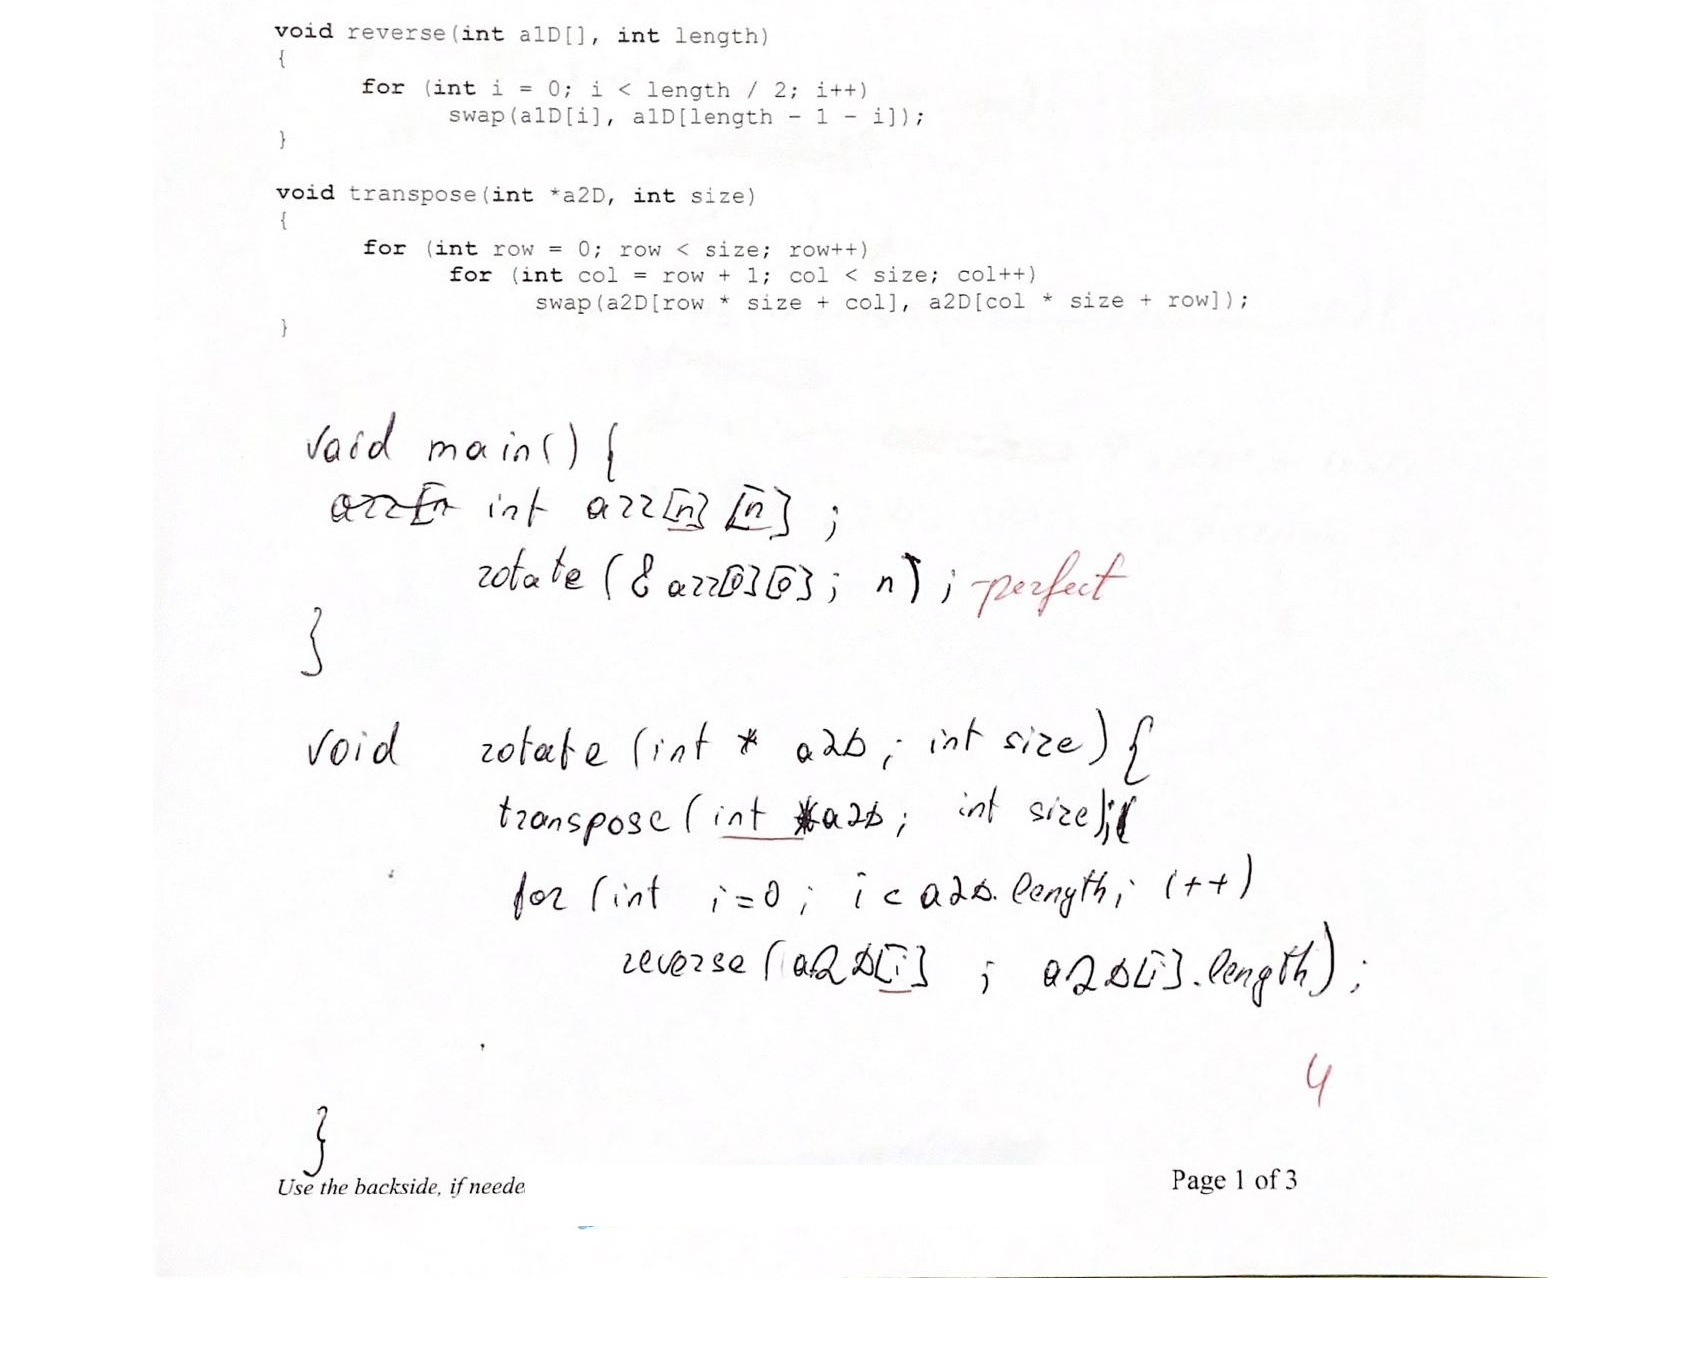 void reverse(int a1D[], int length)
{
for (int i = 0; i < length / 2; i++)
swap(a1D[i], a1D[length - 1 - i]);
}
void transpose(int *a2D, int size)
{
for (int row = 0; row < size; row++)
for (int col = row + 1; col < size; col++)
swap(a2D[row * size + col], a2D[col * size + row]);
}
void main() {
arr[n int arr[n] [n] ;
rotate (&arr[0][0]; n) ; -perfect
}
void rotate (int * a2D ; int size) {
transpose (int *a2D ; int size);
for (int i=0 ; i < a2D.length; i++)
reverse (a2D[i] ; a2D[i].length) ;
4
}
Use the backside, if neede
Page 1 of 3